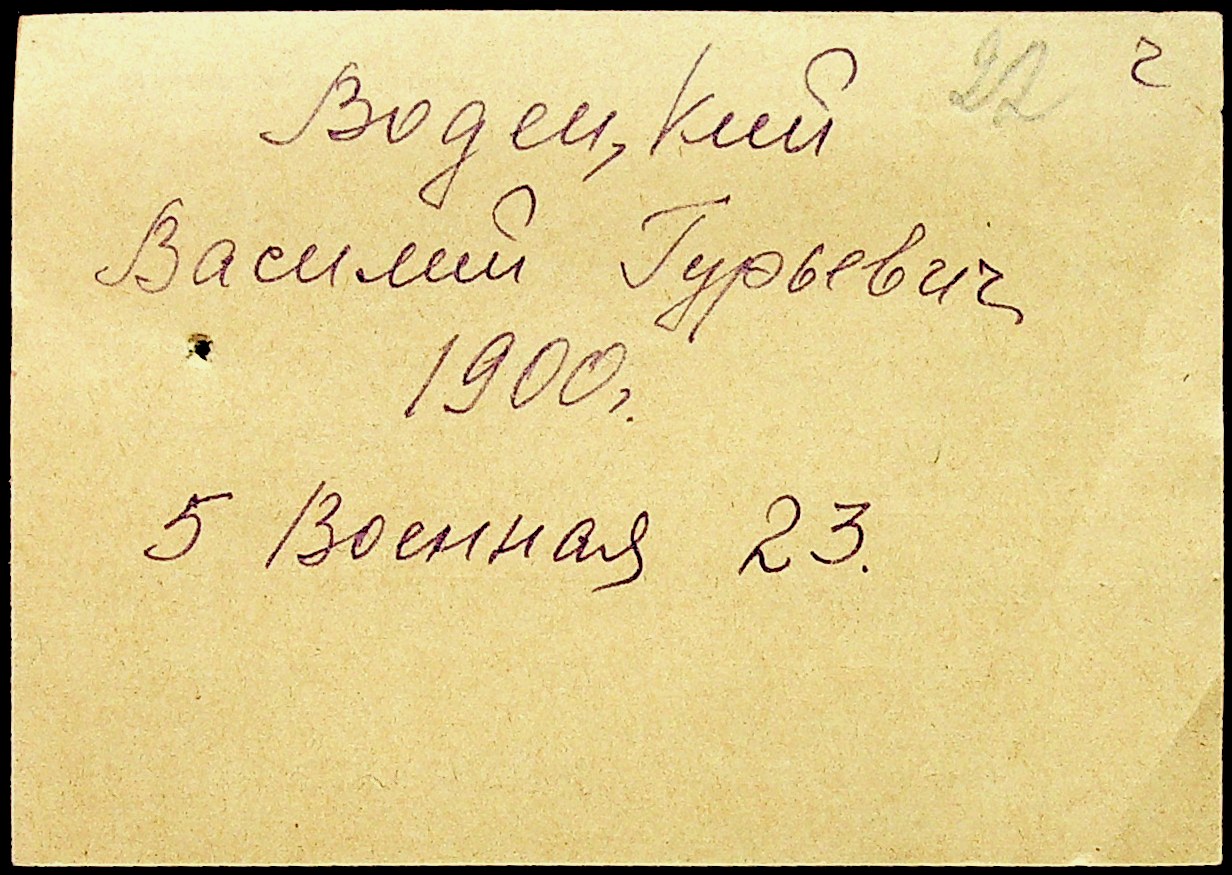 22 ч
Водецкий
Василий Гурьевич
1900г.
5 Военная 23.